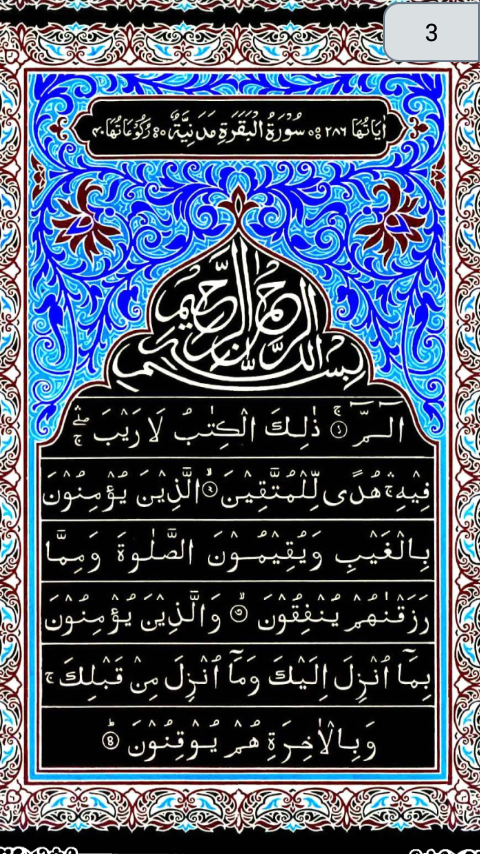 3
اٰيَاتُهَا ٢٨٦ سُوْرَةُ الْبَقَرَةِ مَدَنِيَّةٌ رُكُوْعَاتُهَا ٤٠
بِسْمِ اللّٰهِ الرَّحْمٰنِ الرَّحِيْمِ
الٓمّٓ ۚ﴿۱﴾ ذٰلِكَ الْكِتٰبُ لَا رَيْبَ ۛۖۚ
فِيْهِ ۛۚ هُدًى لِّلْمُتَّقِيْنَ ۙ﴿۲﴾ الَّذِيْنَ يُؤْمِنُوْنَ
بِالْغَيْبِ وَيُقِيْمُوْنَ الصَّلٰوةَ وَمِمَّا
رَزَقْنٰهُمْ يُنْفِقُوْنَ ۙ﴿۳﴾ وَالَّذِيْنَ يُؤْمِنُوْنَ
بِمَآ اُنْزِلَ اِلَيْكَ وَمَآ اُنْزِلَ مِنْ قَبْلِكَ ۚ
وَبِالْاٰخِرَةِ هُمْ يُوْقِنُوْنَ ؕ﴿۴﴾